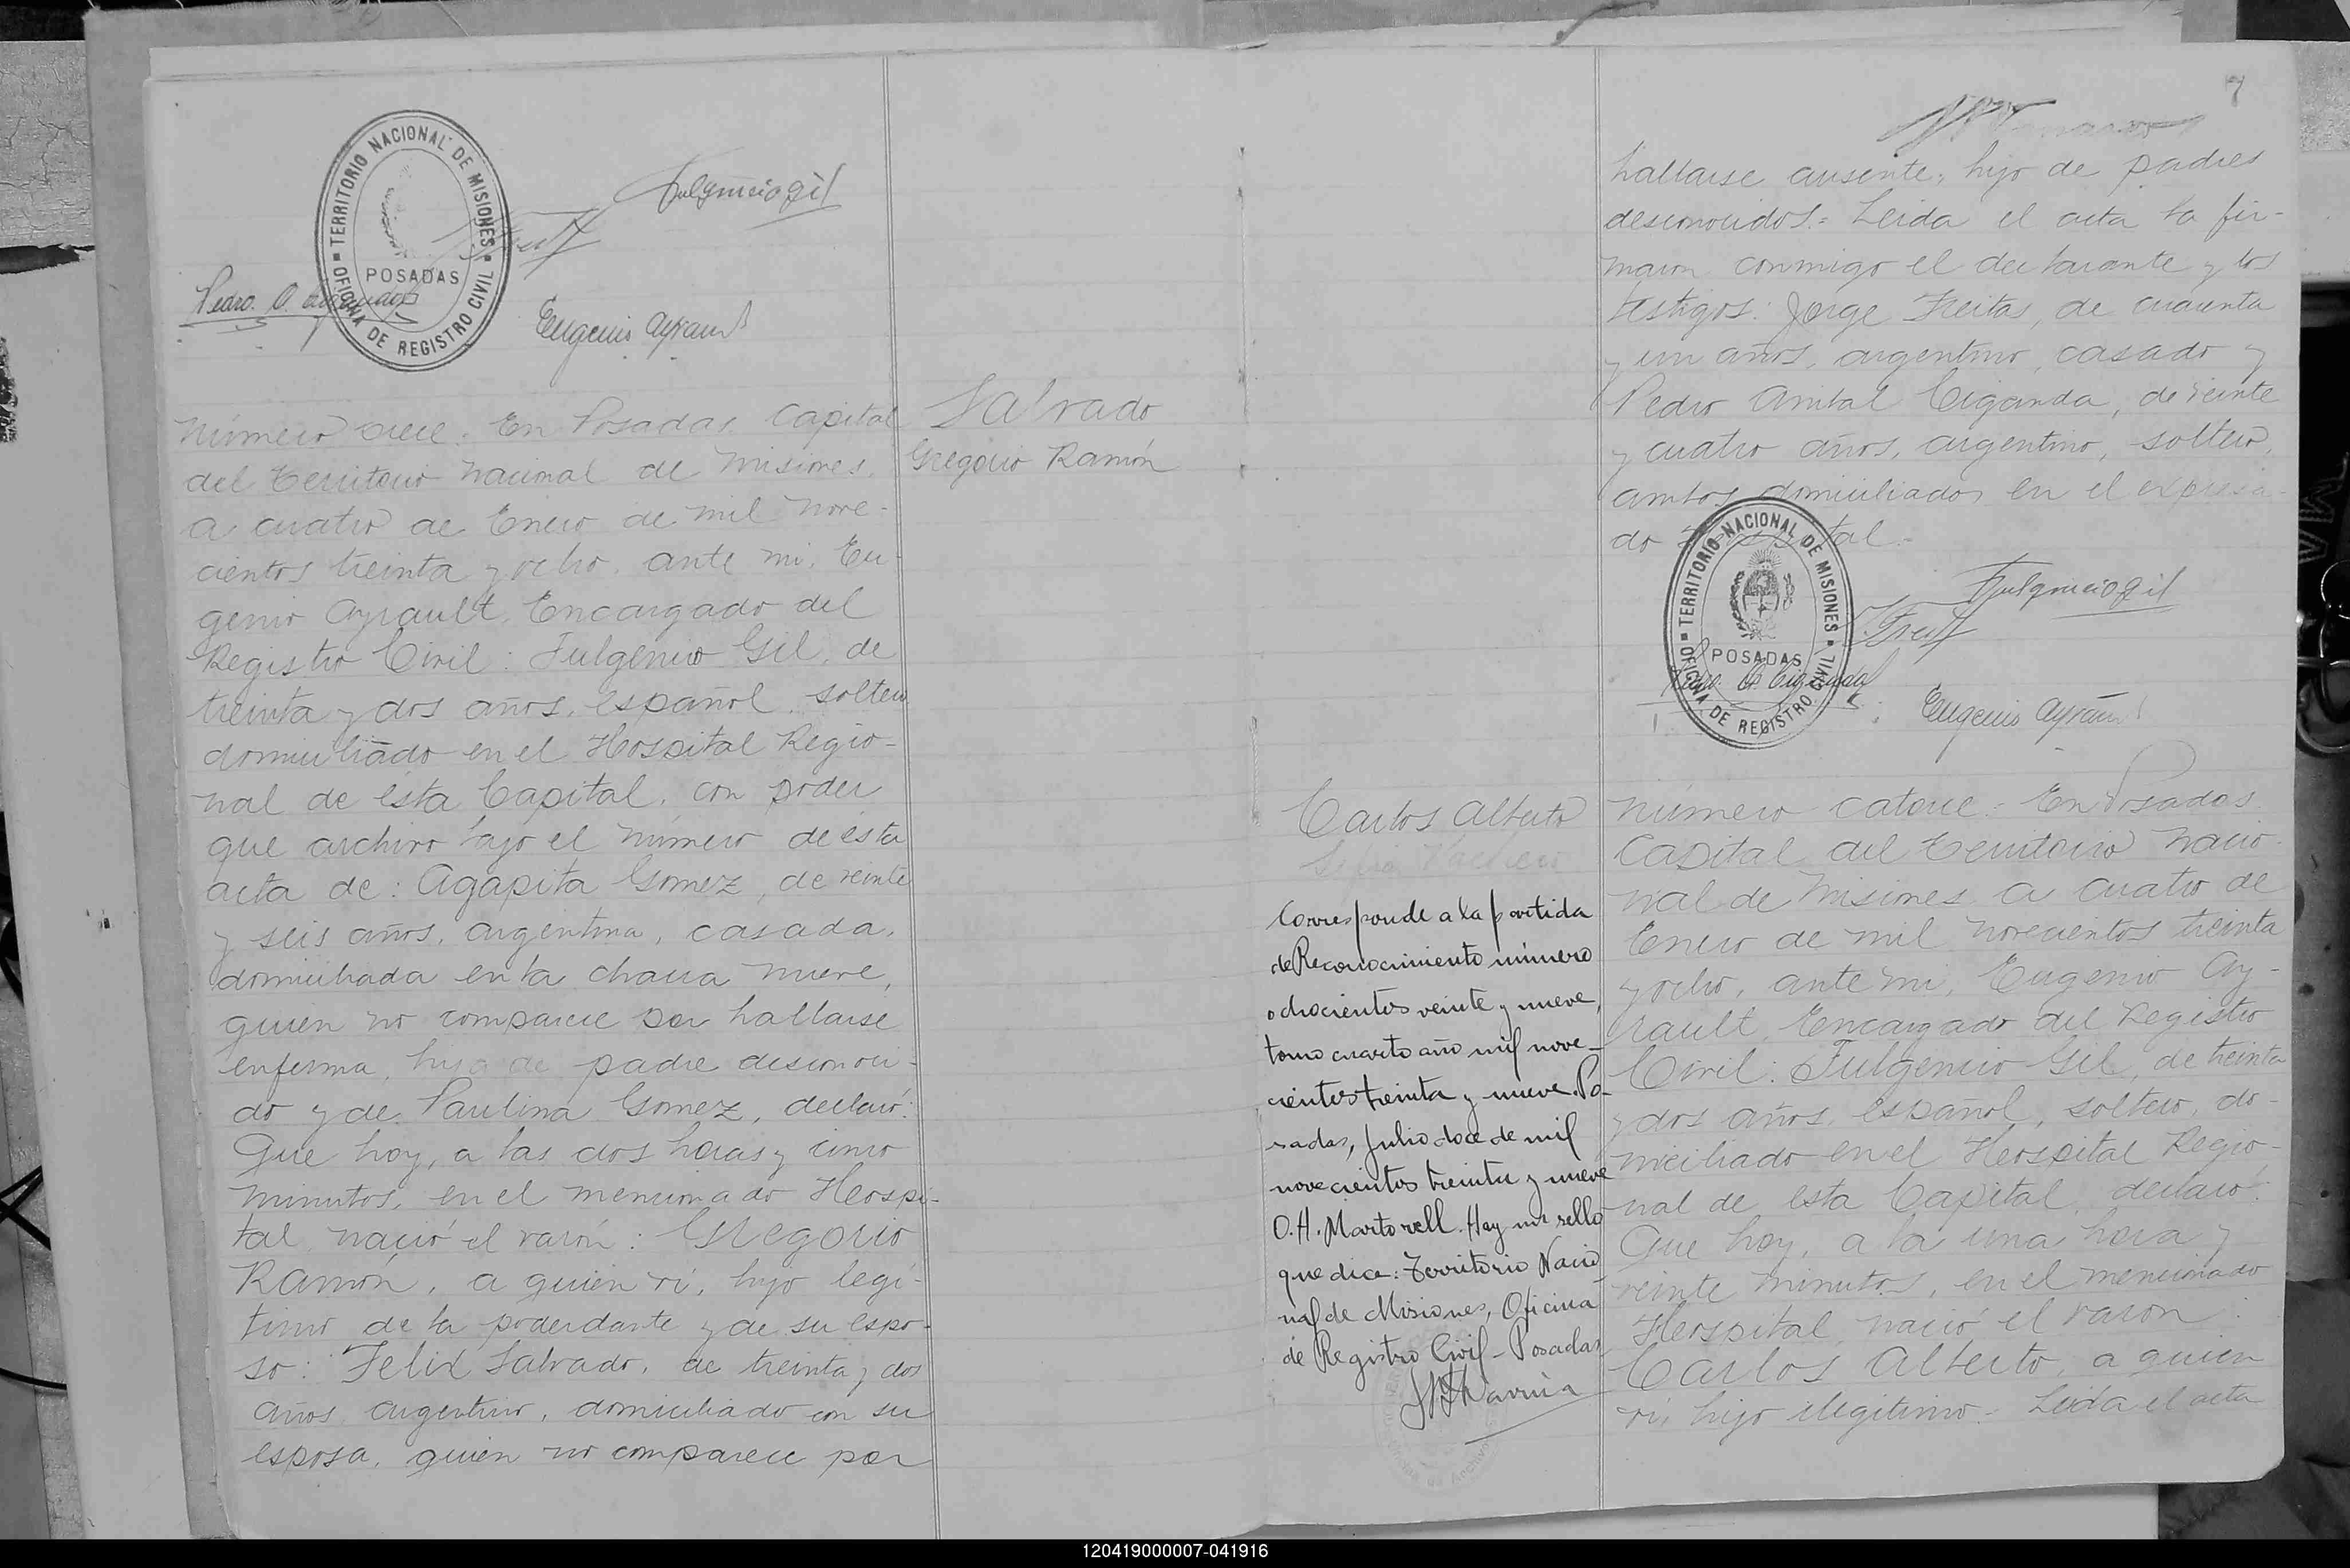 TERRITORIO NACIONAL DE MISIONES
POSADAS
OFICINA DE REGISTRO CIVIL
Fulgencio Gil
Pedro A. Ciganda
Eugenio Ayrault
Salvado
Gregorio Ramón
Número trece: En Posadas, Capital
del Territorio Nacional de Misiones,
a cuatro de Enero de mil nove-
cientos treinta y ocho, ante mi, Eu-
genio Ayrault, Encargado del
Registro Civil: Fulgencio Gil, de
treinta y dos años, español, soltero
domiciliado en el Hospital Regio-
nal de ésta Capital, con poder
que archivo bajo el número de ésta
acta de: Agapita Gomez, de veinte
y seis años, argentina, casada,
domiciliada en la chacra nueve,
quien no comparece por hallarse
enferma, hija de padre desconoci-
do y de Paulina Gomez, declaró:
Que hoy, a las dos horas y cinco
minutos, en el mencionado Hospi-
tal, nació el varón: Gregorio
Ramón, a quien ví, hijo legí-
timo de la poderdante y de su espo-
so: Felix Salvado, de treinta y dos
años, argentino, domiciliado con su
esposa, quien no comparece por
7
hallarse ausente, hijo de padres
desconocidos.= Leida el acta la fir-
maron conmigo el declarante y los
testigos: Jorge Freitas, de cuarenta
y un años, argentino, casado y
Pedro Anibal Ciganda, de veinte
y cuatro años, argentino, soltero,
ambos domiciliados en el expresa-
do Hospital.-
TERRITORIO NACIONAL DE MISIONES
POSADAS
OFICINA DE REGISTRO CIVIL
Fulgencio Gil
Pedro A. Ciganda
Eugenio Ayrault
Carlos Alberto
Corresponde a la partida
de Reconocimiento número
ochocientos veinte y nueve,
tomo cuarto año mil nove-
cientos treinta y nueve. Po-
sadas, Julio doce de mil
novecientos treinta y nueve
O. H. Martorell. Hay un sello
que dice: Territorio Nacio
nal de Misiones, Oficina
de Registro Civil - Posadas
Número catorce: En Posadas
Capital del Territorio Nacio-
nal de Misiones a cuatro de
Enero de mil novecientos treinta
y ocho, ante mi, Eugenio Ay-
rault, Encargado del Registro
Civil: Fulgencio Gil, de treinta
y dos años, español, soltero, do-
miciliado en el Hospital Regio-
nal de esta Capital, declaró:
Que hoy, a la una hora y
veinte minutos, en el mencionado
Hospital, nació el varón:
Carlos Alberto, a quien
ví, hijo ilegítimo.- Leida el acta
120419000007-041916